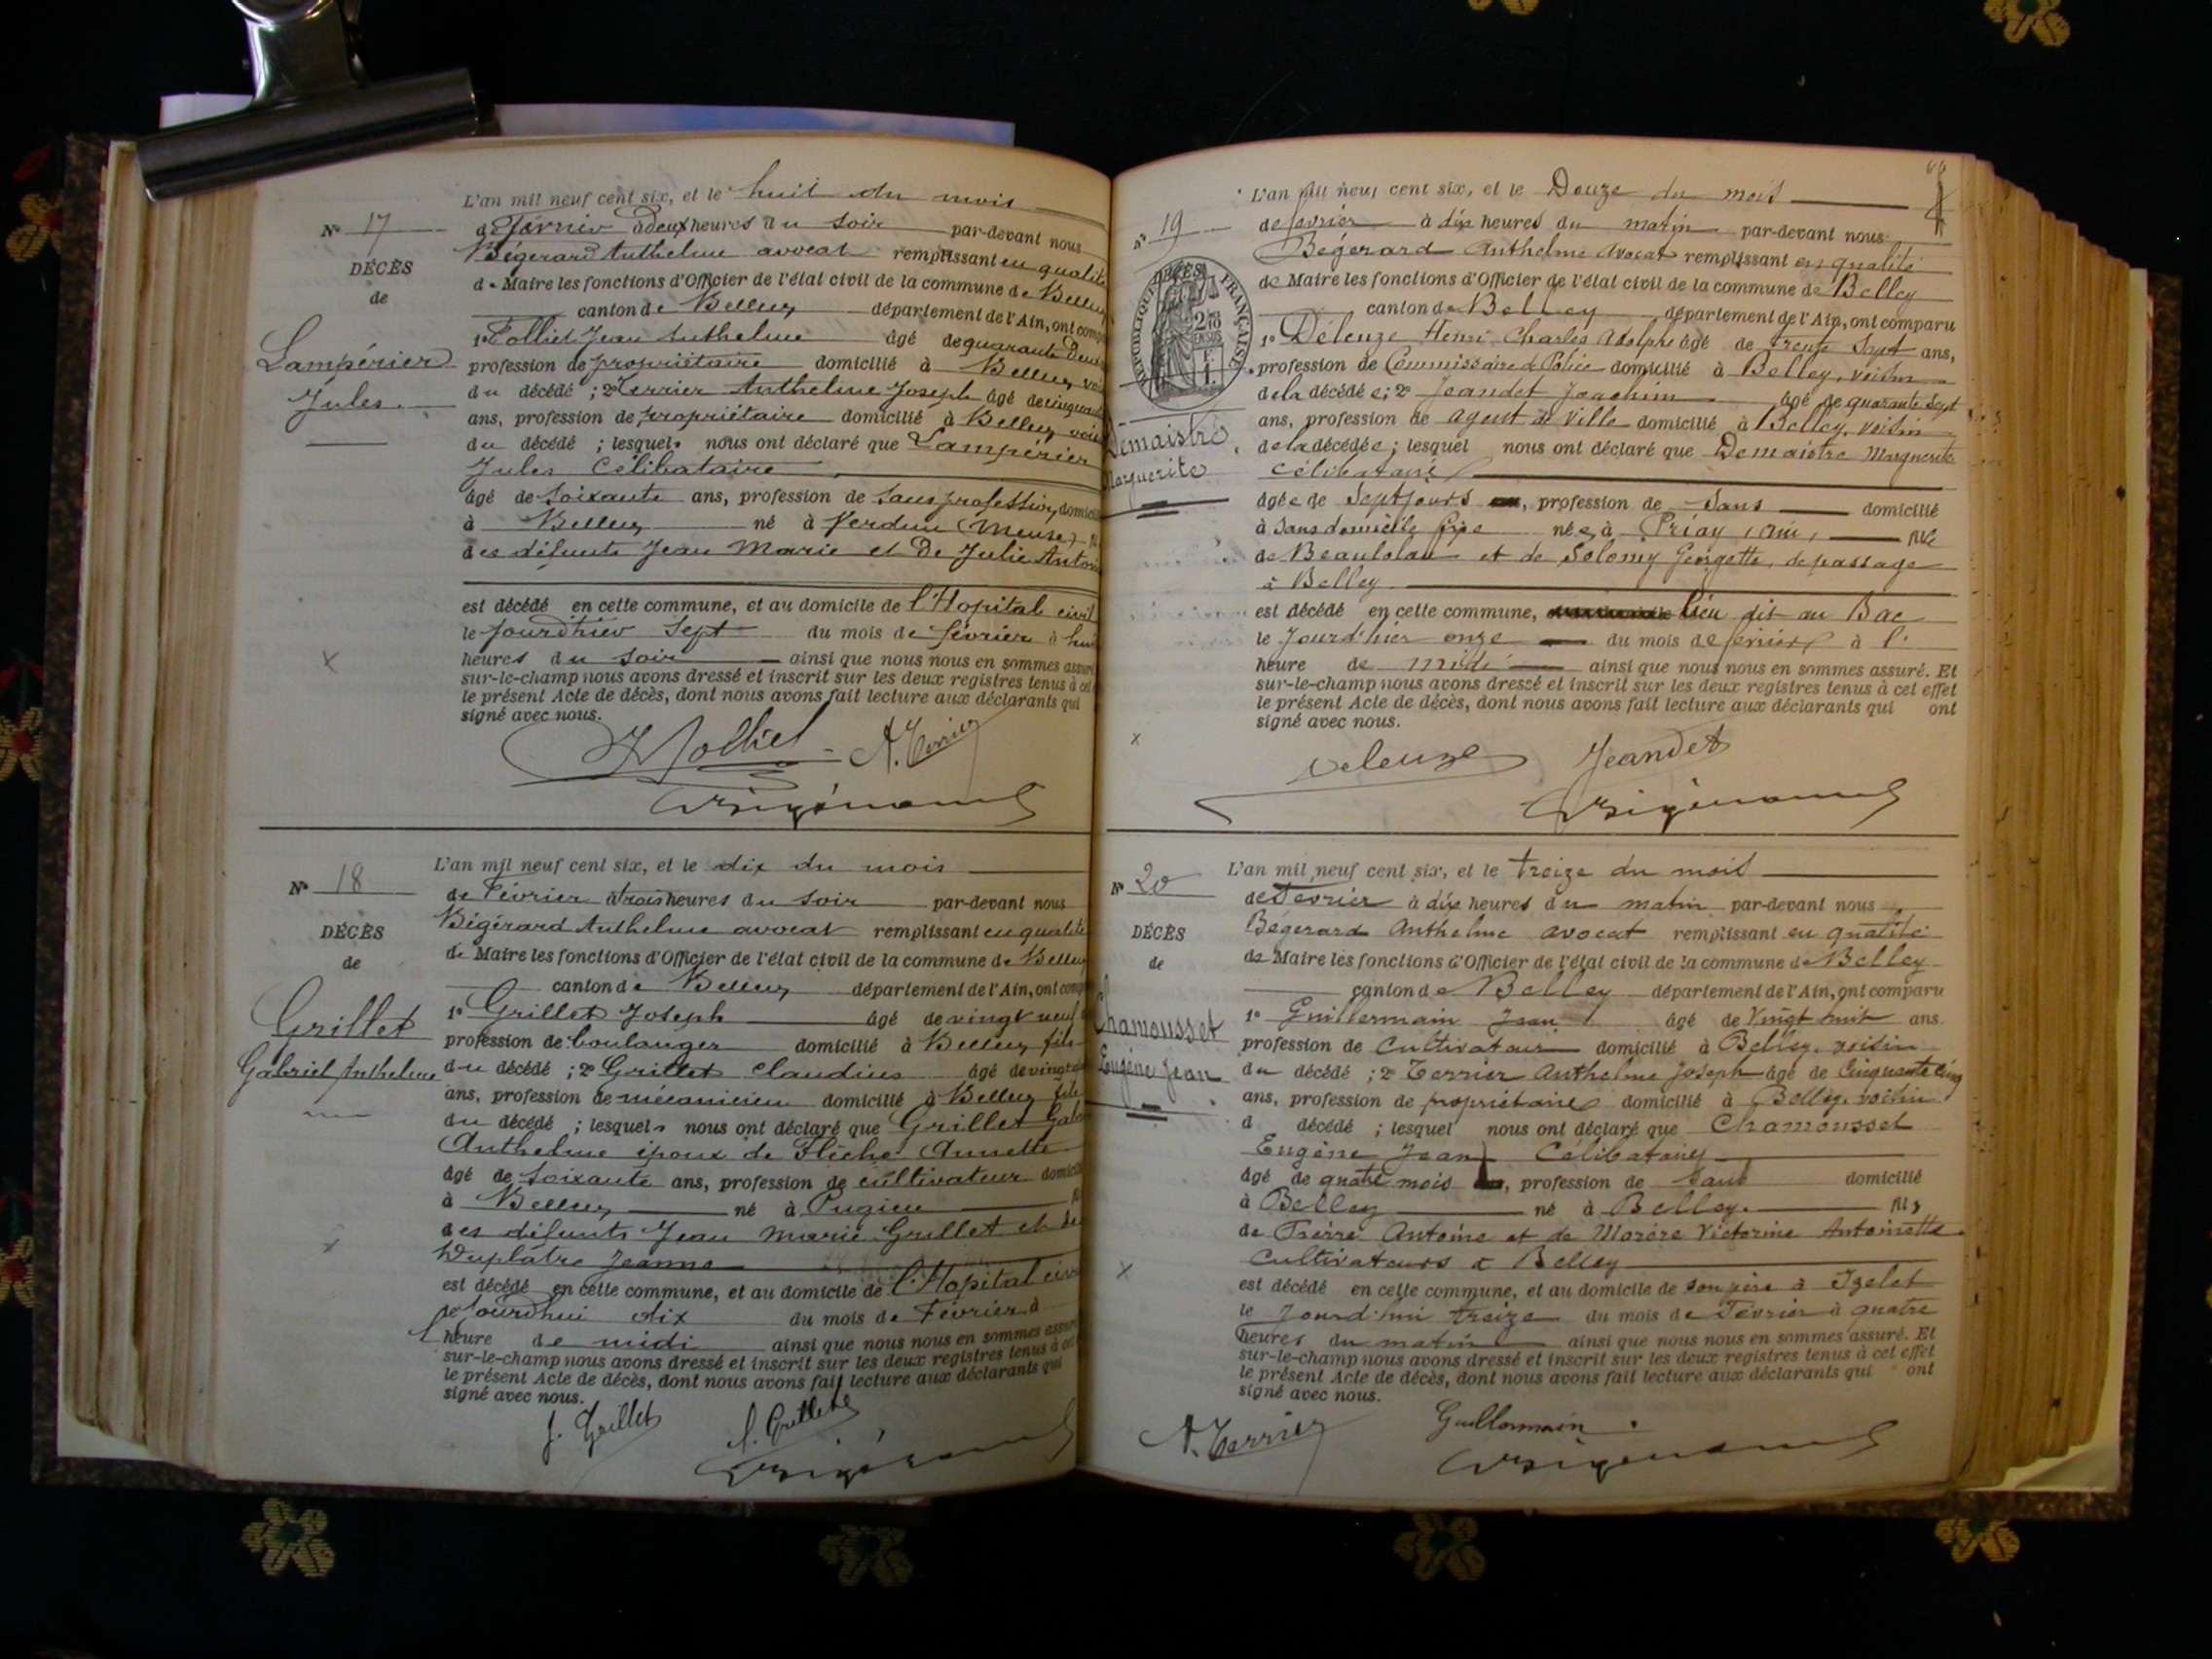 L'an mil neuf cent six, et le huit du mois
N° 17
de Février à deux heures du soir par-devant nous
Bégerard Anthelme avocat remplissant en qualité
DÉCÈS
de Maire les fonctions d'Officier de l'état civil de la commune de Belley
de
canton de Belley département de l'Ain, ont comp
1° Folliet Jean Anthelme âgé de quarante deux
Lampérier
profession de propriétaire domicilié à Belley, voi
Jules.
du décédé ; 2° Terrier Anthelme Joseph âgé de cinquan
ans, profession de propriétaire domicilié à Belley voisi
du décédé ; lesquels nous ont déclaré que Lampérier
Jules Célibataire
âgé de soixante ans, profession de sans profession, domici
à Belley né à Verdun (Meuse) fi
des défunts Jean Marie et De Julie Antoni
est décédé en cette commune, et au domicile de l'Hopital civil
le jourd'hier sept du mois de février à hui
heures du soir ainsi que nous nous en sommes assuré
sur-le-champ nous avons dressé et inscrit sur les deux registres tenus à cet
le présent Acte de décès, dont nous avons fait lecture aux déclarants qui
signé avec nous.
Folliet A. Terrier
Bégérard
L'an mil neuf cent six, et le dix du mois
N° 18
de Février à trois heures du soir par-devant nous
Bégérard Anthelme avocat remplissant en qualité
DÉCÈS
de Maire les fonctions d'Officier de l'état civil de la commune de Belley
de
canton de Belley département de l'Ain, ont comp
1° Grillet Joseph âgé de vingt neuf
Grillet
profession de boulanger domicilié à Belley, fils
Gabriel Anthelme
du décédé ; 2° Grillet Claudius âgé de vingt
ans, profession de mécanicien domicilié à Belley fils
du décédé ; lesquels nous ont déclaré que Grillet Gab
Anthelme époux de Fléchet Annette
âgé de soixante ans, profession de cultivateur domici
à Belley né à Pugieu
des défunts Jean Marie Grillet et de
Duplâtre Jeanne
est décédé en cette commune, et au domicile de l'Hopital civi
le jourd'hui dix du mois de Février à
l'heure de midi ainsi que nous nous en sommes assur
sur-le-champ nous avons dressé et inscrit sur les deux registres tenus à cet
le présent Acte de décès, dont nous avons fait lecture aux déclarants qui
signé avec nous.
J. Grillet
Bégérard
L'an mil neuf cent six, et le Douze du mois
N° 19
de février à dix heures du matin par-devant nous
Bégerard Anthelme Avocat remplissant en qualité
DÉCÈS
RÉPUBLIQUE FRANÇAISE
de Maire les fonctions d'Officier de l'état civil de la commune de Belley
canton de Belley département de l'Ain, ont comparu
1° Deleuze Henri Charles Adolphe âgé de trente sept ans,
profession de Commissaire de Police domicilié à Belley, voisin
de la décédée ; 2° Jeandet Joachim âgé de quarante sept
ans, profession de agent de Ville domicilié à Belley, voisin
Demaistre
Marguerite
de la décédée ; lesquel nous ont déclaré que Demaistre Marguerite
célibataire
âgée de sept jours, profession de sans domicilié
à sans domicile fixe née à Priay, Ain, fille
de Beaulolau et de Solomy Georgette, de passage
à Belley.
est décédé en cette commune, lieu dit au Bac
le jourd'hier onze du mois de février à l'
heure de midi ainsi que nous nous en sommes assuré. Et
sur-le-champ nous avons dressé et inscrit sur les deux registres tenus à cet effet
le présent Acte de décès, dont nous avons fait lecture aux déclarants qui ont
signé avec nous.
Deleuze Jeandet
Bégérard
L'an mil neuf cent six, et le treize du mois
N° 20
de Février à dix heures du matin par-devant nous
Bégerard Anthelme avocat remplissant en qualité
DÉCÈS
de Maire les fonctions d'Officier de l'état civil de la commune de Belley
de
canton de Belley département de l'Ain, ont comparu
1° Guillermain Jean âgé de Vingt huit ans.
Chamousset
profession de Cultivateur domicilié à Belley. voisin
Eugène Jean
du décédé ; 2° Terrier Anthelme Joseph âgé de Cinquante cinq
ans, profession de propriétaire domicilié à Belley. voisin
d décédé ; lesquel nous ont déclaré que Chamousset
Eugène Jean Célibataire
âgé de quatre mois, profession de sans domicilié
à Belley né à Belley. fils
de Pierre Antoine et de Morére Victorine Antoinette
Cultivateurs à Belley
est décédé en cette commune, et au domicile de son père à Izelet
le Jourd'hui treize du mois de Février à quatre
heures du matin ainsi que nous nous en sommes assuré. Et
sur-le-champ nous avons dressé et inscrit sur les deux registres tenus à cet effet
le présent Acte de décès, dont nous avons fait lecture aux déclarants qui ont
signé avec nous.
A. Terrier Guillermain
Bégérard